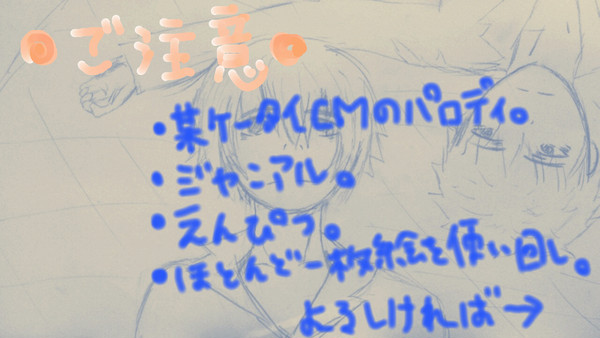 ご注意
・某ケータイCMのパロディ。
・ジャニアル。
・えんぴつ。
・ほとんど一枚絵を使い回し。
よろしければ→